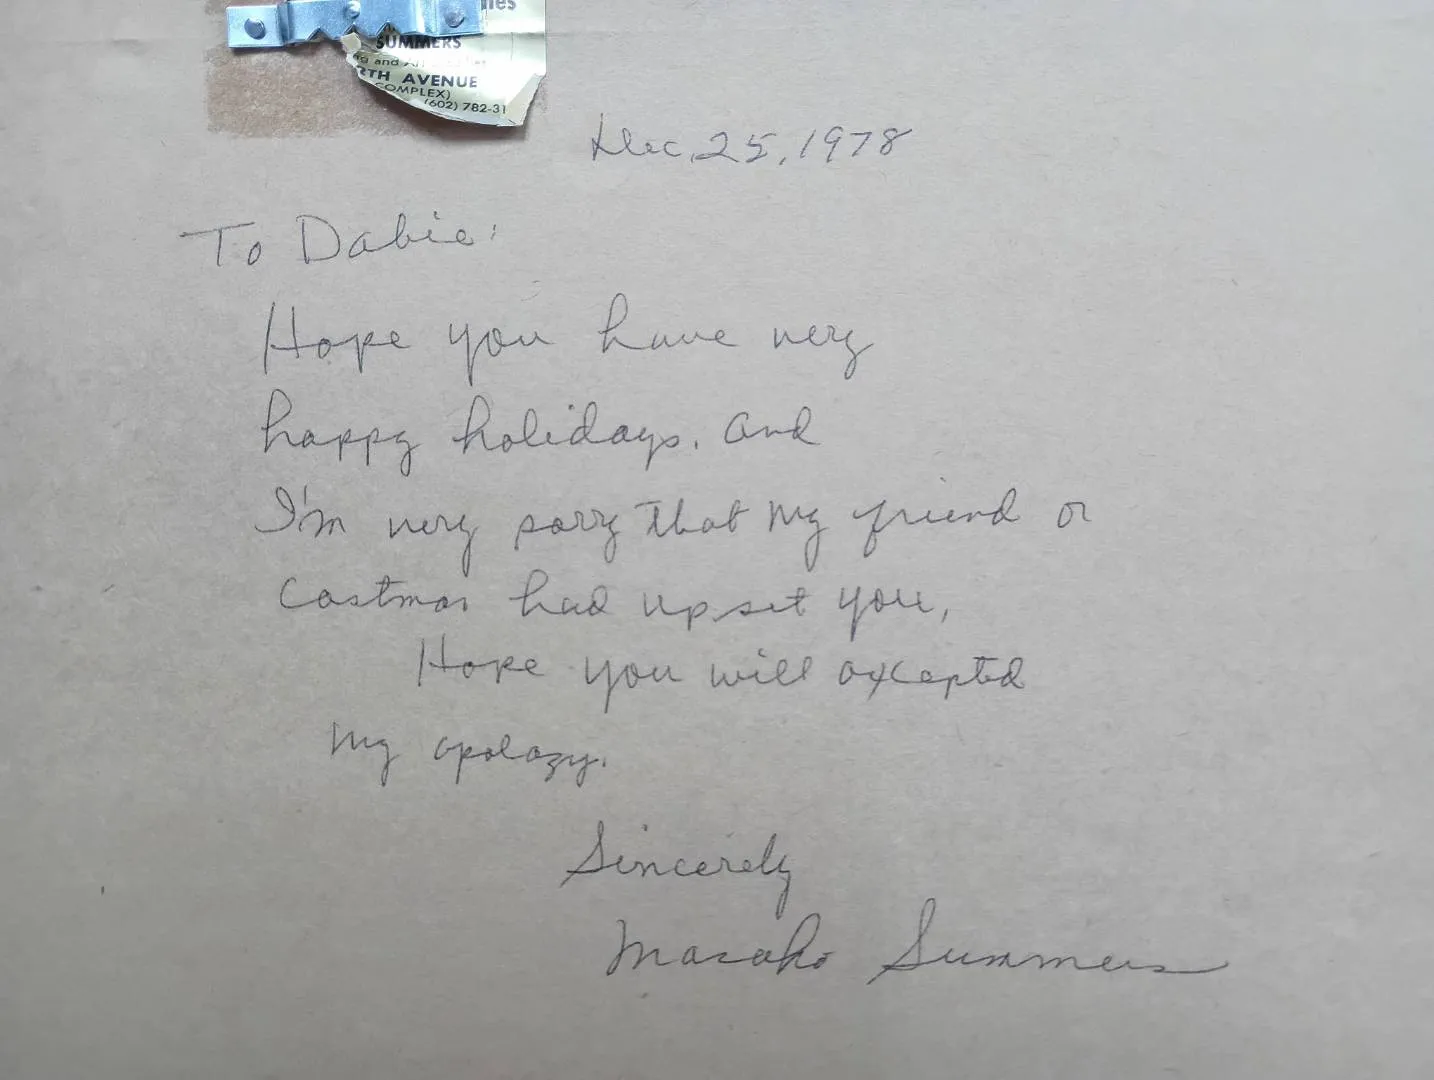 SUMMERS
AVENUE
COMPLEX)
(602) 782-31
Dec, 25, 1978
To Dabie:
Hope you have very
happy holidays. and
I'm very sorry that my friend or
Costmar had upset you,
Hope you will axcepted
my apology.
Sincerely
Masako Summers